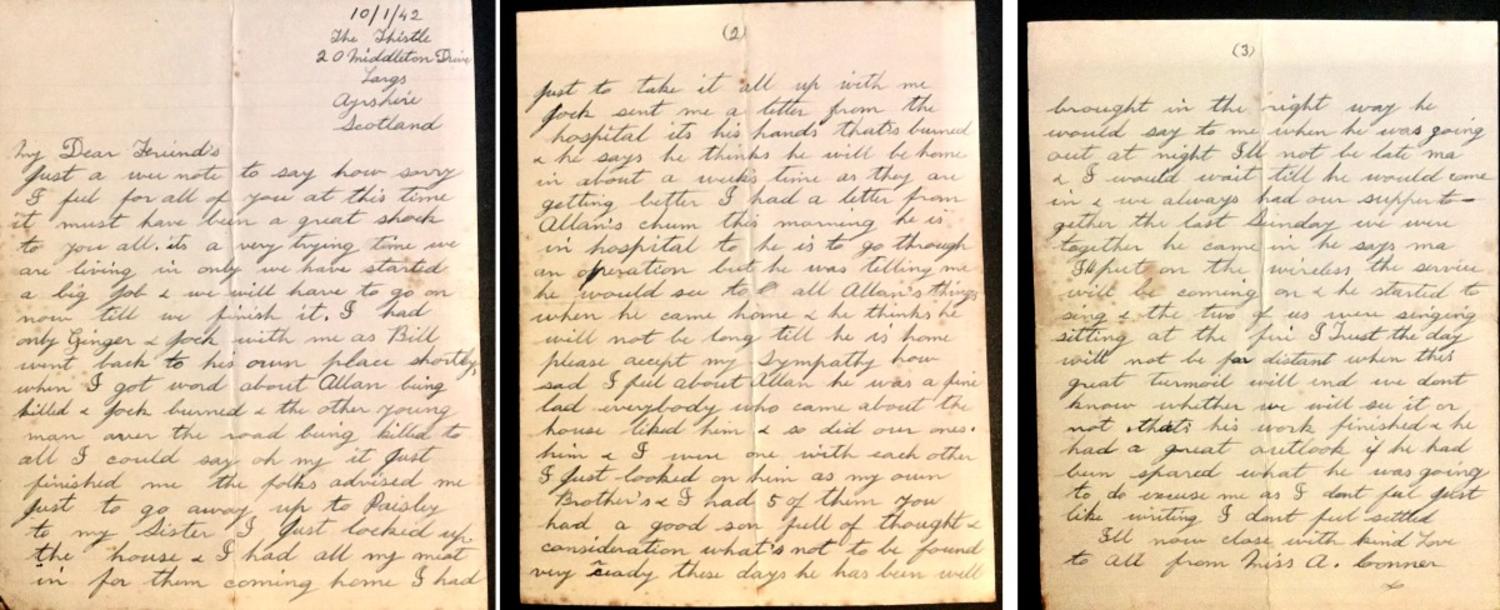 10/1/42
The Thistle
20 Middleton Drive
Largs
Ayrshire
Scotland
My Dear Friend's
Just a wee note to say how sorry
I feel for all of you at this time
it must have been a great shock
to you all. its a very trying time we
are living in only we have started
a big job & we will have to go on
now till we finish it. I had
only Ginger & Jock with me as Bill
went back to his own place shortly,
when I got word about Allan being
killed & Jock burned & the other young
man over the road being killed to
all I could say oh my it just
finished me the folks advised me
just to go away up to Paisley
to my Sister I just locked up
the house & I had all my meat
in for them coming home I had
(2)
just to take it all up with me
Jock sent me a letter from the
hospital its his hands that's burned
& he says he thinks he will be home
in about a week's time as they are
getting better I had a letter from
Allan's chum this morning he is
in hospital to he is to go through
an operation but he was telling me
he would see to all Allan's things
when he came home & he thinks he
will not be long till he is home
please accept my Sympathy how
sad I feel about Allan he was a fine
lad everybody who came about the
house liked him & so did our ones.
him & I were one with each other
I just looked on him as my own
Brother's & I had 5 of them you
had a good son full of thought &
consideration what's not to be found
very ready these days he has been well
(3)
brought in the right way he
would say to me when he was going
out at night I'll not be late ma
& I would wait till he would come
in & we always had our supper to-
gether the last Sunday we were
together he came in he says ma
I'll put on the wireless the service
will be coming on & he started to
sing & the two of us were singing
sitting at the fire I Trust the day
will not be far distant when this
great turmoil will end we dont
know whether we will see it or
not that's his work finished & he
had a great outlook if he had
been spared what he was going
to do excuse me as I dont feel just
like writing I dont feel settled
I'll now close with kind Love
to all from Miss A. Conner
x